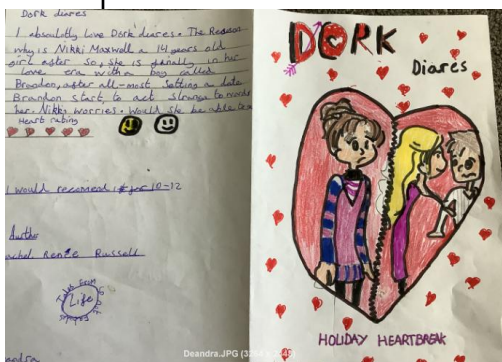 Dork diares
I absolutly Love Dork diares. The Reason
why is Nikki Maxwell a 14 years old
girl aster so, she is finally in her
Love era with a boy called
Brandon, aster all-most getting a date
Brandon start, to act strange to words
her. Nikki worries. Would she be able to
Heart rating
I would recomend 10-12
Auther
achel Renée Russell
Life
DORK
Diares
HOLIDAY HEARTBREAK
Deandra.JPG